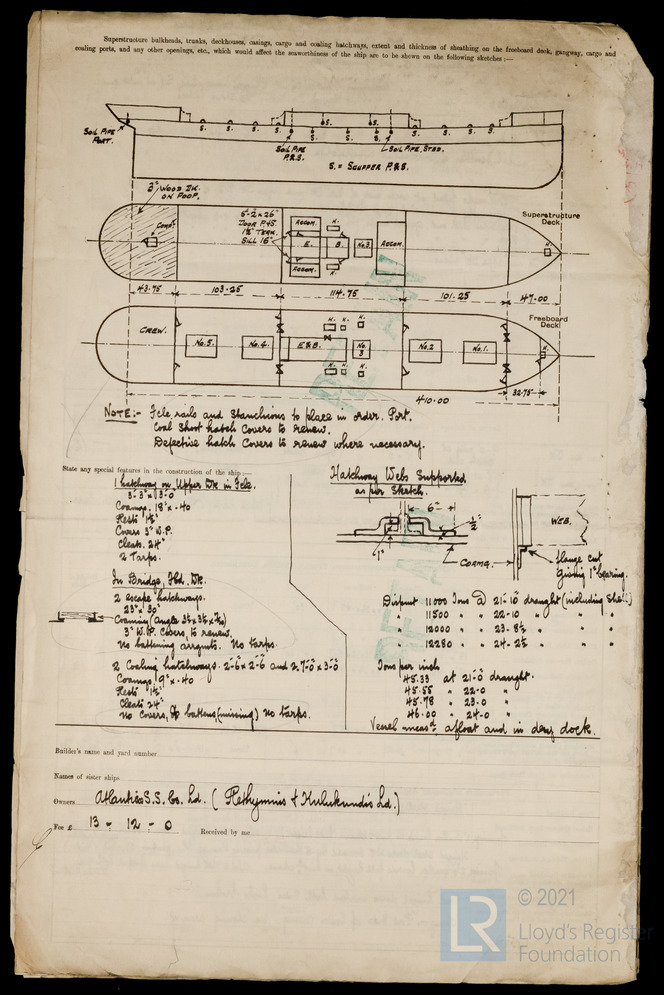 Superstructure bulkheads, trunks, deckhouses, casings, cargo and coaling hatchways, extent and thickness of sheathing on the freeboard deck, gangway, cargo and
coaling ports, and any other openings, etc., which would affect the seaworthiness of the ship are to be shewn on the following sketches:—
S. S. S. S. S. S. S. S. S.
SOIL PIPE
PORT.
SOIL PIPE
P.&S.
SOIL PIPE, STBD.
S. = SCUPPER P.&S.
3" WOOD DK.
ON POOP.
COMPN.
5'-2 x 26"
DOOR P.&S.
1¾" TEAK.
SILL 16"
ACCOM.
E. B.
No.3
ACCOM.
ACCOM.
H.
H.
H.
Superstructure
Deck
43.75 103.25 114.75 101.25 47.00
Freeboard
Deck
CREW.
No.5.
No.4.
E&B.
No.
3
No.2
No.1.
H.
32.75
410.00
NOTE:- Fcle. rails and Stanchions to place in order. Port.
Coal Shoot hatch Covers to renew.
Defective hatch Covers to renew where necessary.
State any special features in the construction of the ship:—
1 hatchway on Upper Dk in Fcle.
3'-3" x 3'-0
Coamgs. 18" x .40
Rests 1½"
Covers 3" W.P.
Cleats. 24"
2 Tarps.
In Bridge, Fbd. Dk.
2 escape hatchways.
23" x 30"
3" W.P. Covers, to renew.
No battening arrgmts. No tarps.
2 Coaling hatchways. 2'-6 x 2'-6 and 2. 7'-0 x 3'-0
Coamings 9" x .40
Rests 1½"
Cleats 24"
No Covers, battens (missing) No tarps.
Hatchway Webs Supported
as per Sketch.
6"
½"
1"
COAMG.
WEB.
flange cut
Giving 1" bearing.
Displmt 11000 Tons @ 21'-10 draught (including Shell)
" 11500 " " 22-10 " " "
" 12000 " " 23-8½ " " "
" 12280 " " 24-2½ " " "
Tons per inch
45.33 at 21'-0 draught.
45.55 " 22-0 "
45.78 " 23-0 "
46.00 " 24-0 "
Vessel measd. afloat and in dry dock.
Builder's name and yard number
Names of sister ships
Owners Atlantic S.S. Co. Ld. ( Rethymnis & Kulukundis Ld.)
Fee £ 13 - 12 - 0 Received by me
LR
© 2021
Lloyd's Register
Foundation